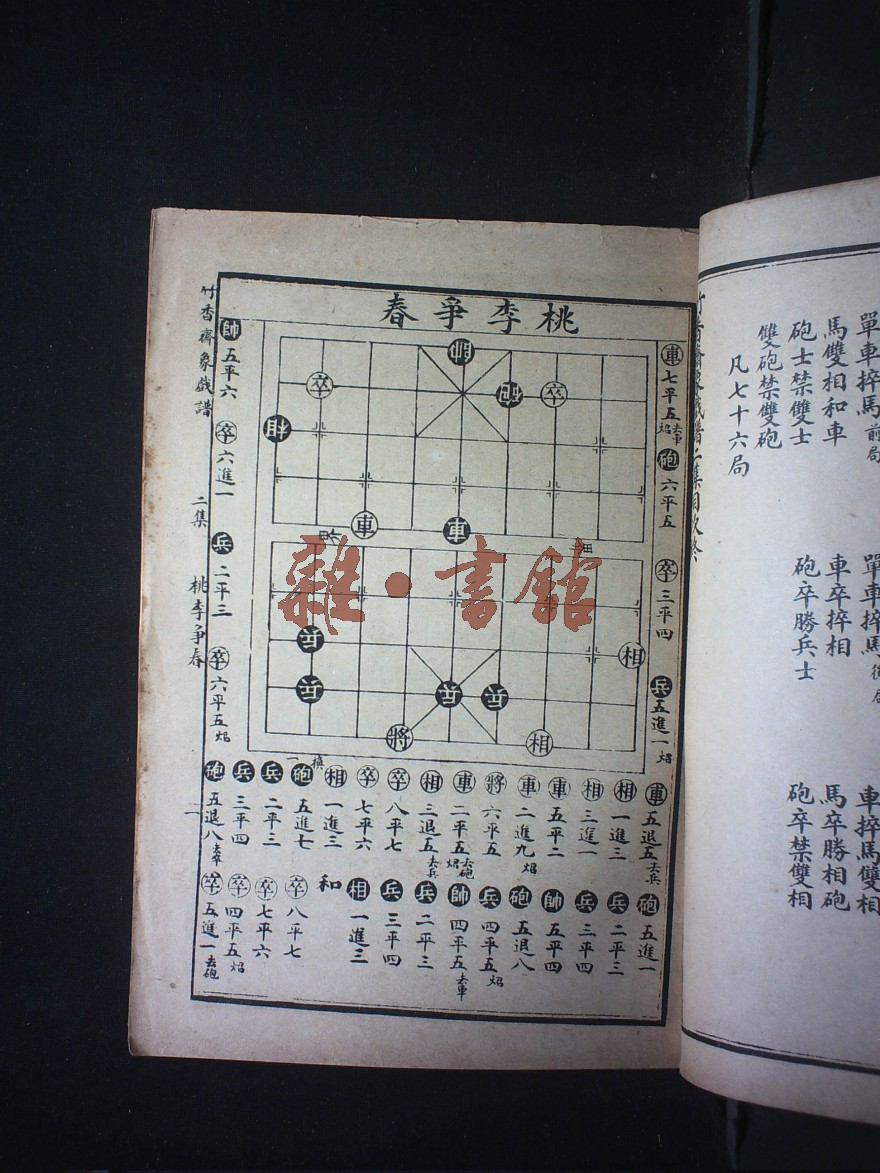 單車捽馬 前局
馬雙相和車
砲士禁雙士
雙砲禁雙砲
凡七十六局
單車捽馬
車卒捽相
砲卒勝兵士
車捽馬雙相
馬卒勝相砲
砲卒禁雙相
桃李爭春
帥
卒 砲 卒
相
車 車
兵
相
兵 兵 兵
將 相
車七平五 去車 炤
砲六平五
卒三平四
兵五進一 炤
車五退五 去兵
砲五進一
相一進三
兵二平三
相三進一
兵三平四
車五平二
帥五平四
車二進九 炤
砲五退八
將六平五
兵四平五 炤
車二平五 去砲 炤
帥四平五 去車
相三退五 去兵
兵二平三
卒八平七
兵三平四
卒七平六
相一進三
相一進三
和
一換
砲五進七
卒八平七
兵二平三
卒七平六
兵三平四
卒四平五 炤
砲五退八 去卒
卒五進一 去砲
帥五平六
卒六進一
兵二平三
卒六平五 炤
竹香齋象戲譜 二集 桃李爭春 一
雜·書館